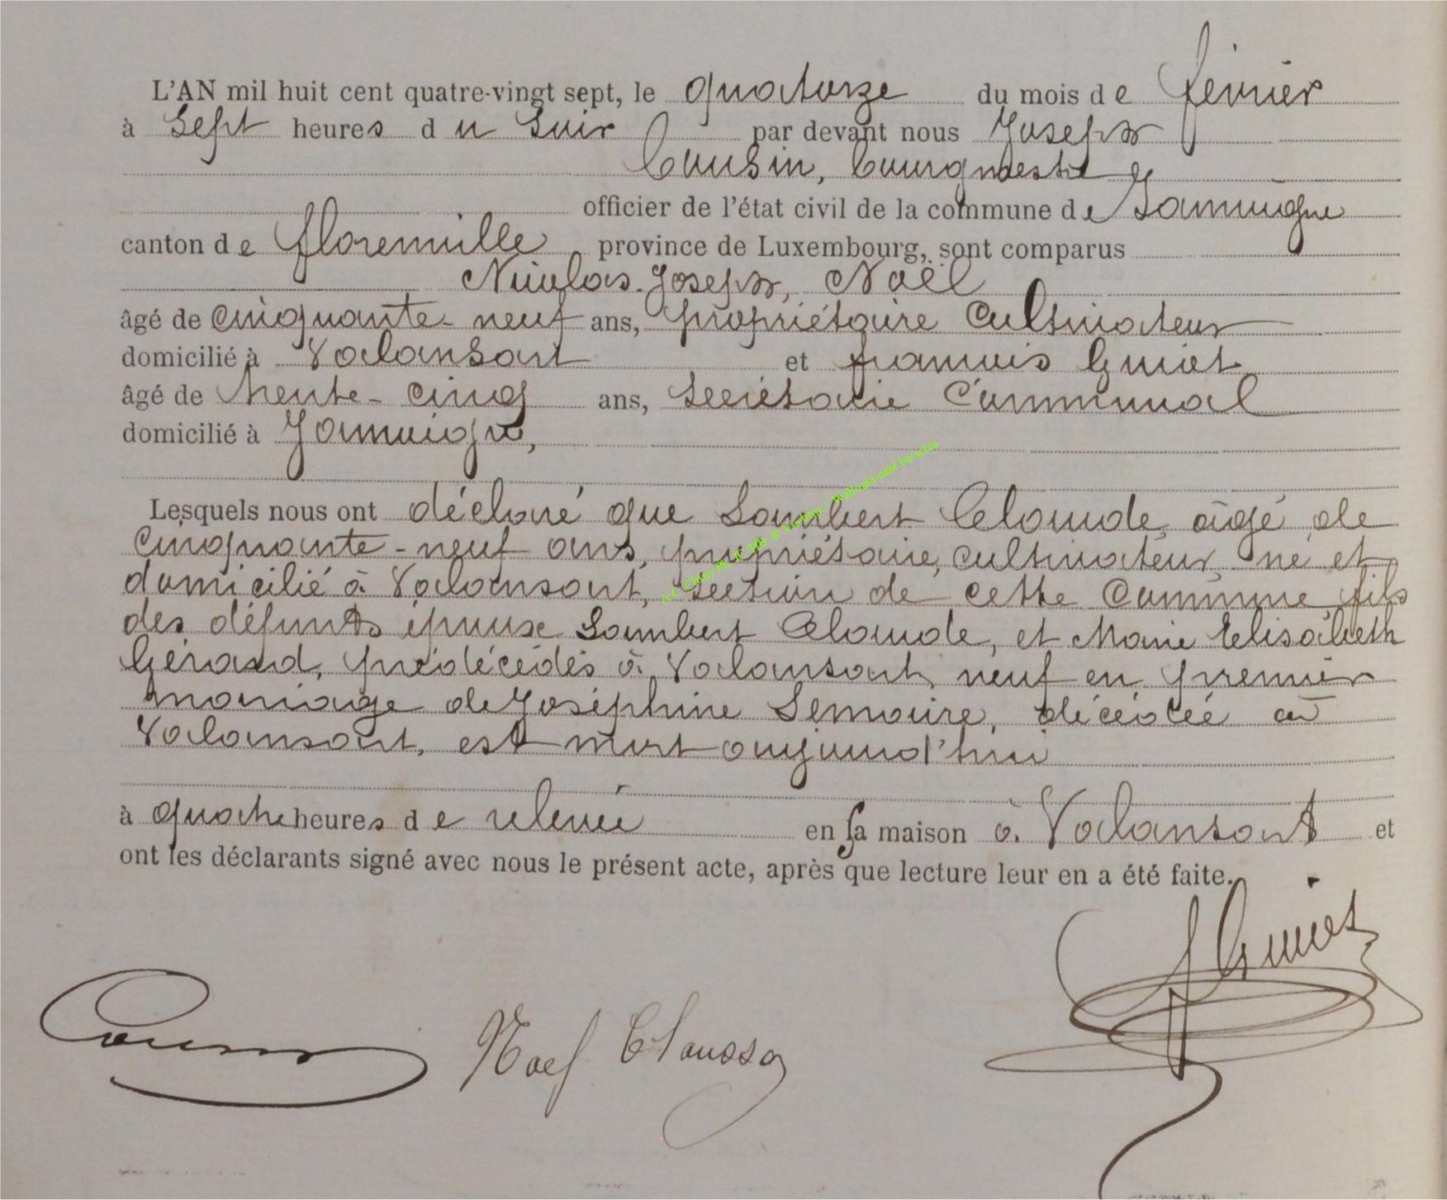 L'AN mil huit cent quatre-vingt sept, le quatorze du mois de février
à Sept heures du Soir par devant nous Joseph
Cousin, bourgmestre
officier de l'état civil de la commune de Jamoigne
canton de florenville province de Luxembourg, sont comparus
Nicolas-Joseph, Noël
âgé de cinquante-neuf ans, propriétaire cultivateur
domicilié à Valansart et françois Guiot
âgé de trente-cinq ans, Secrétaire Communal
domicilié à Jamoigne,
Lesquels nous ont déclaré que Lambert Claude, âgé de
cinquante-neuf ans, propriétaire, cultivateur, né et
domicilié à Valansart, section de cette Commune, fils
des défunts époux Lambert Claude, et Marie Elisabeth
Gérard, prédécédés à Valansart, veuf en premier
mariage de Joséphine Lemaire, décédée à
Valansart, est mort aujourd'hui
à quatre heures de relevée en sa maison à Valansart et
ont les déclarants signé avec nous le présent acte, après que lecture leur en a été faite.
Cousin Noel f Guiot